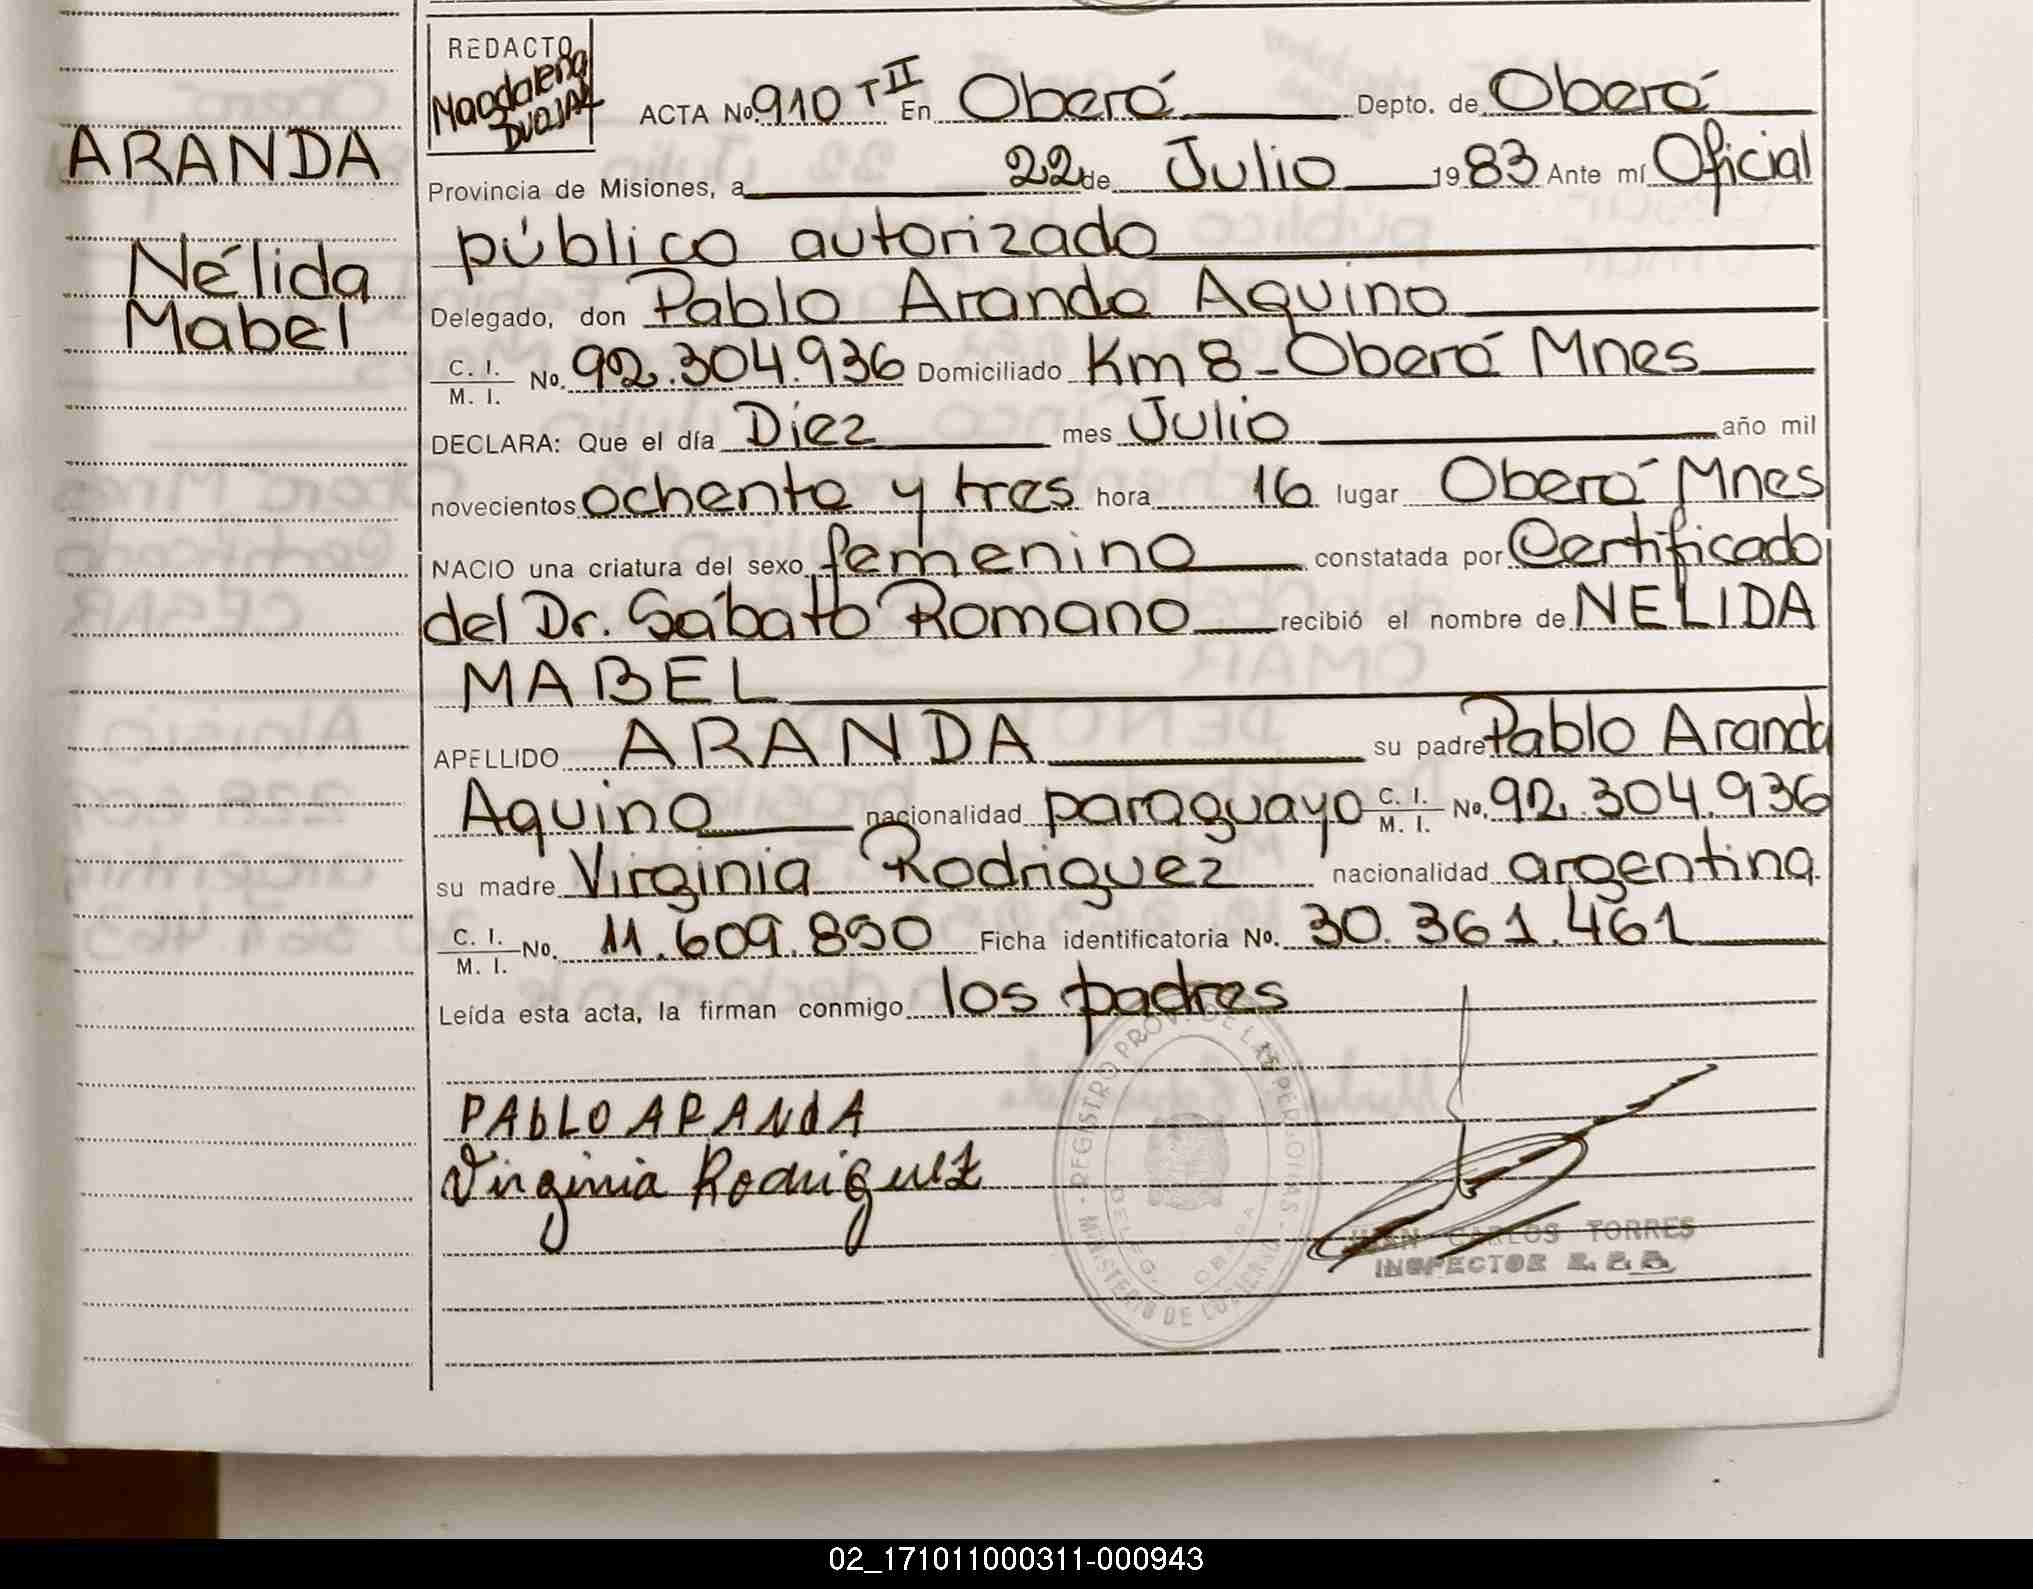 REDACTO
Magdalena
ARANDA
Nélida
Mabel
ACTA No. 910 T II En Oberá Depto. de Oberá
Provincia de Misiones, a 22 de Julio 1983 Ante mí Oficial
público autorizado
Delegado, don Pablo Aranda Aquino
C. I.
M. I. No. 92.304.936 Domiciliado Km 8 - Oberá Mnes
DECLARA: Que el día Diez mes Julio año mil
novecientos ochenta y tres hora 16 lugar Oberá Mnes
NACIO una criatura del sexo femenino constatada por Certificado
del Dr. Sábato Romano recibió el nombre de NELIDA
MABEL
APELLIDO ARANDA su padre Pablo Aranda
Aquino nacionalidad paraguayo C. I. M. I. No. 92.304.936
su madre Virginia Rodriguez nacionalidad argentina.
C. I.
M. I. No. 11.609.890 Ficha identificatoria No. 30.361.461
Leída esta acta, la firman conmigo los padres
PAbLO ARANdA
Virginia Rodriguez
REGISTRO PROV. DE LAS PERSONAS
MINISTERIO DE GOBIERNO
DELEG. OBERA
JUAN CARLOS TORRES
INSPECTOR
02_171011000311-000943